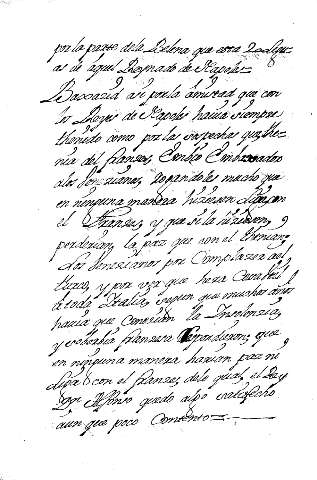 por la parte de la Belona que esta 20 legu
as de aquel Reynado de Napoles
Bacxazid asi por la amistad que con
los Reyes de Napoles havia siempre
thenido como por las sospechas que the
nia del franzes, Embio Embaxador
a los Venezianos, rogandoles mucho que
en ninguna manera hiziesen Liga con
el Franzes, y que si la hiziesen,
perderian, la paz que con el thenian;
Los Venezianos por Complazer al
turco, y por ver que hera Cruel
a toda Italia, supuesto que muchos dias
havia que Conocian la Insolencia,
y sobervia francesa Respondieron, que
en ninguna manera harian paz ni
Liga con el franzes, de lo qual, el Rey
Dn. Alfonso quedo algo satisfecho
aun que poco Contento